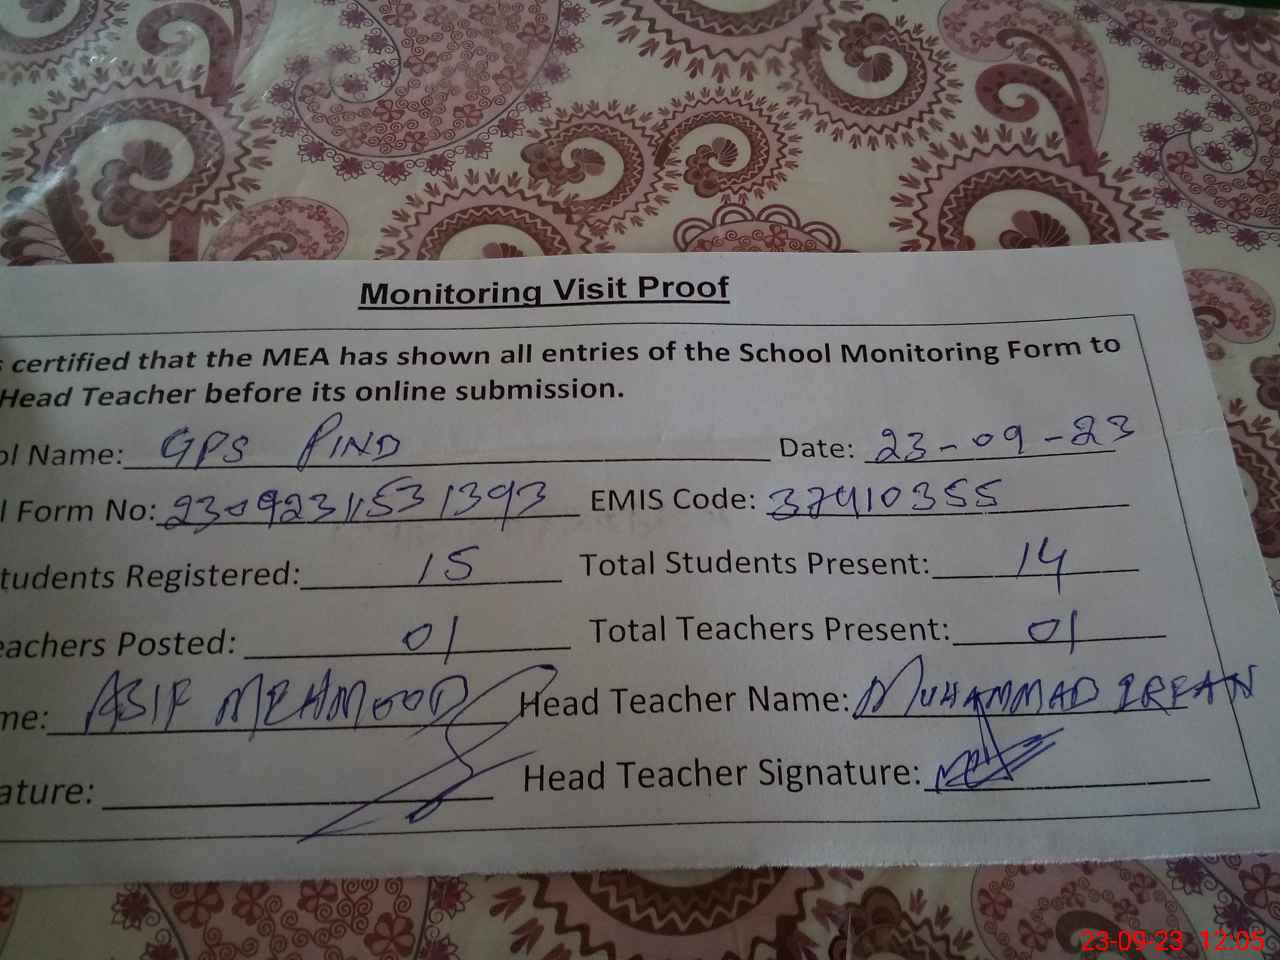 Monitoring Visit Proof
certified that the MEA has shown all entries of the School Monitoring Form to
Head Teacher before its online submission.
ol Name: GPS PIND Date: 23-09-23
l Form No: 23092311531393 EMIS Code: 37410355
tudents Registered: 15 Total Students Present: 14
eachers Posted: 01 Total Teachers Present: 01
me: ASIF MEHMOOD Head Teacher Name: MUHAMMAD IRFAN
ature: Head Teacher Signature:
23-09-23 12:05